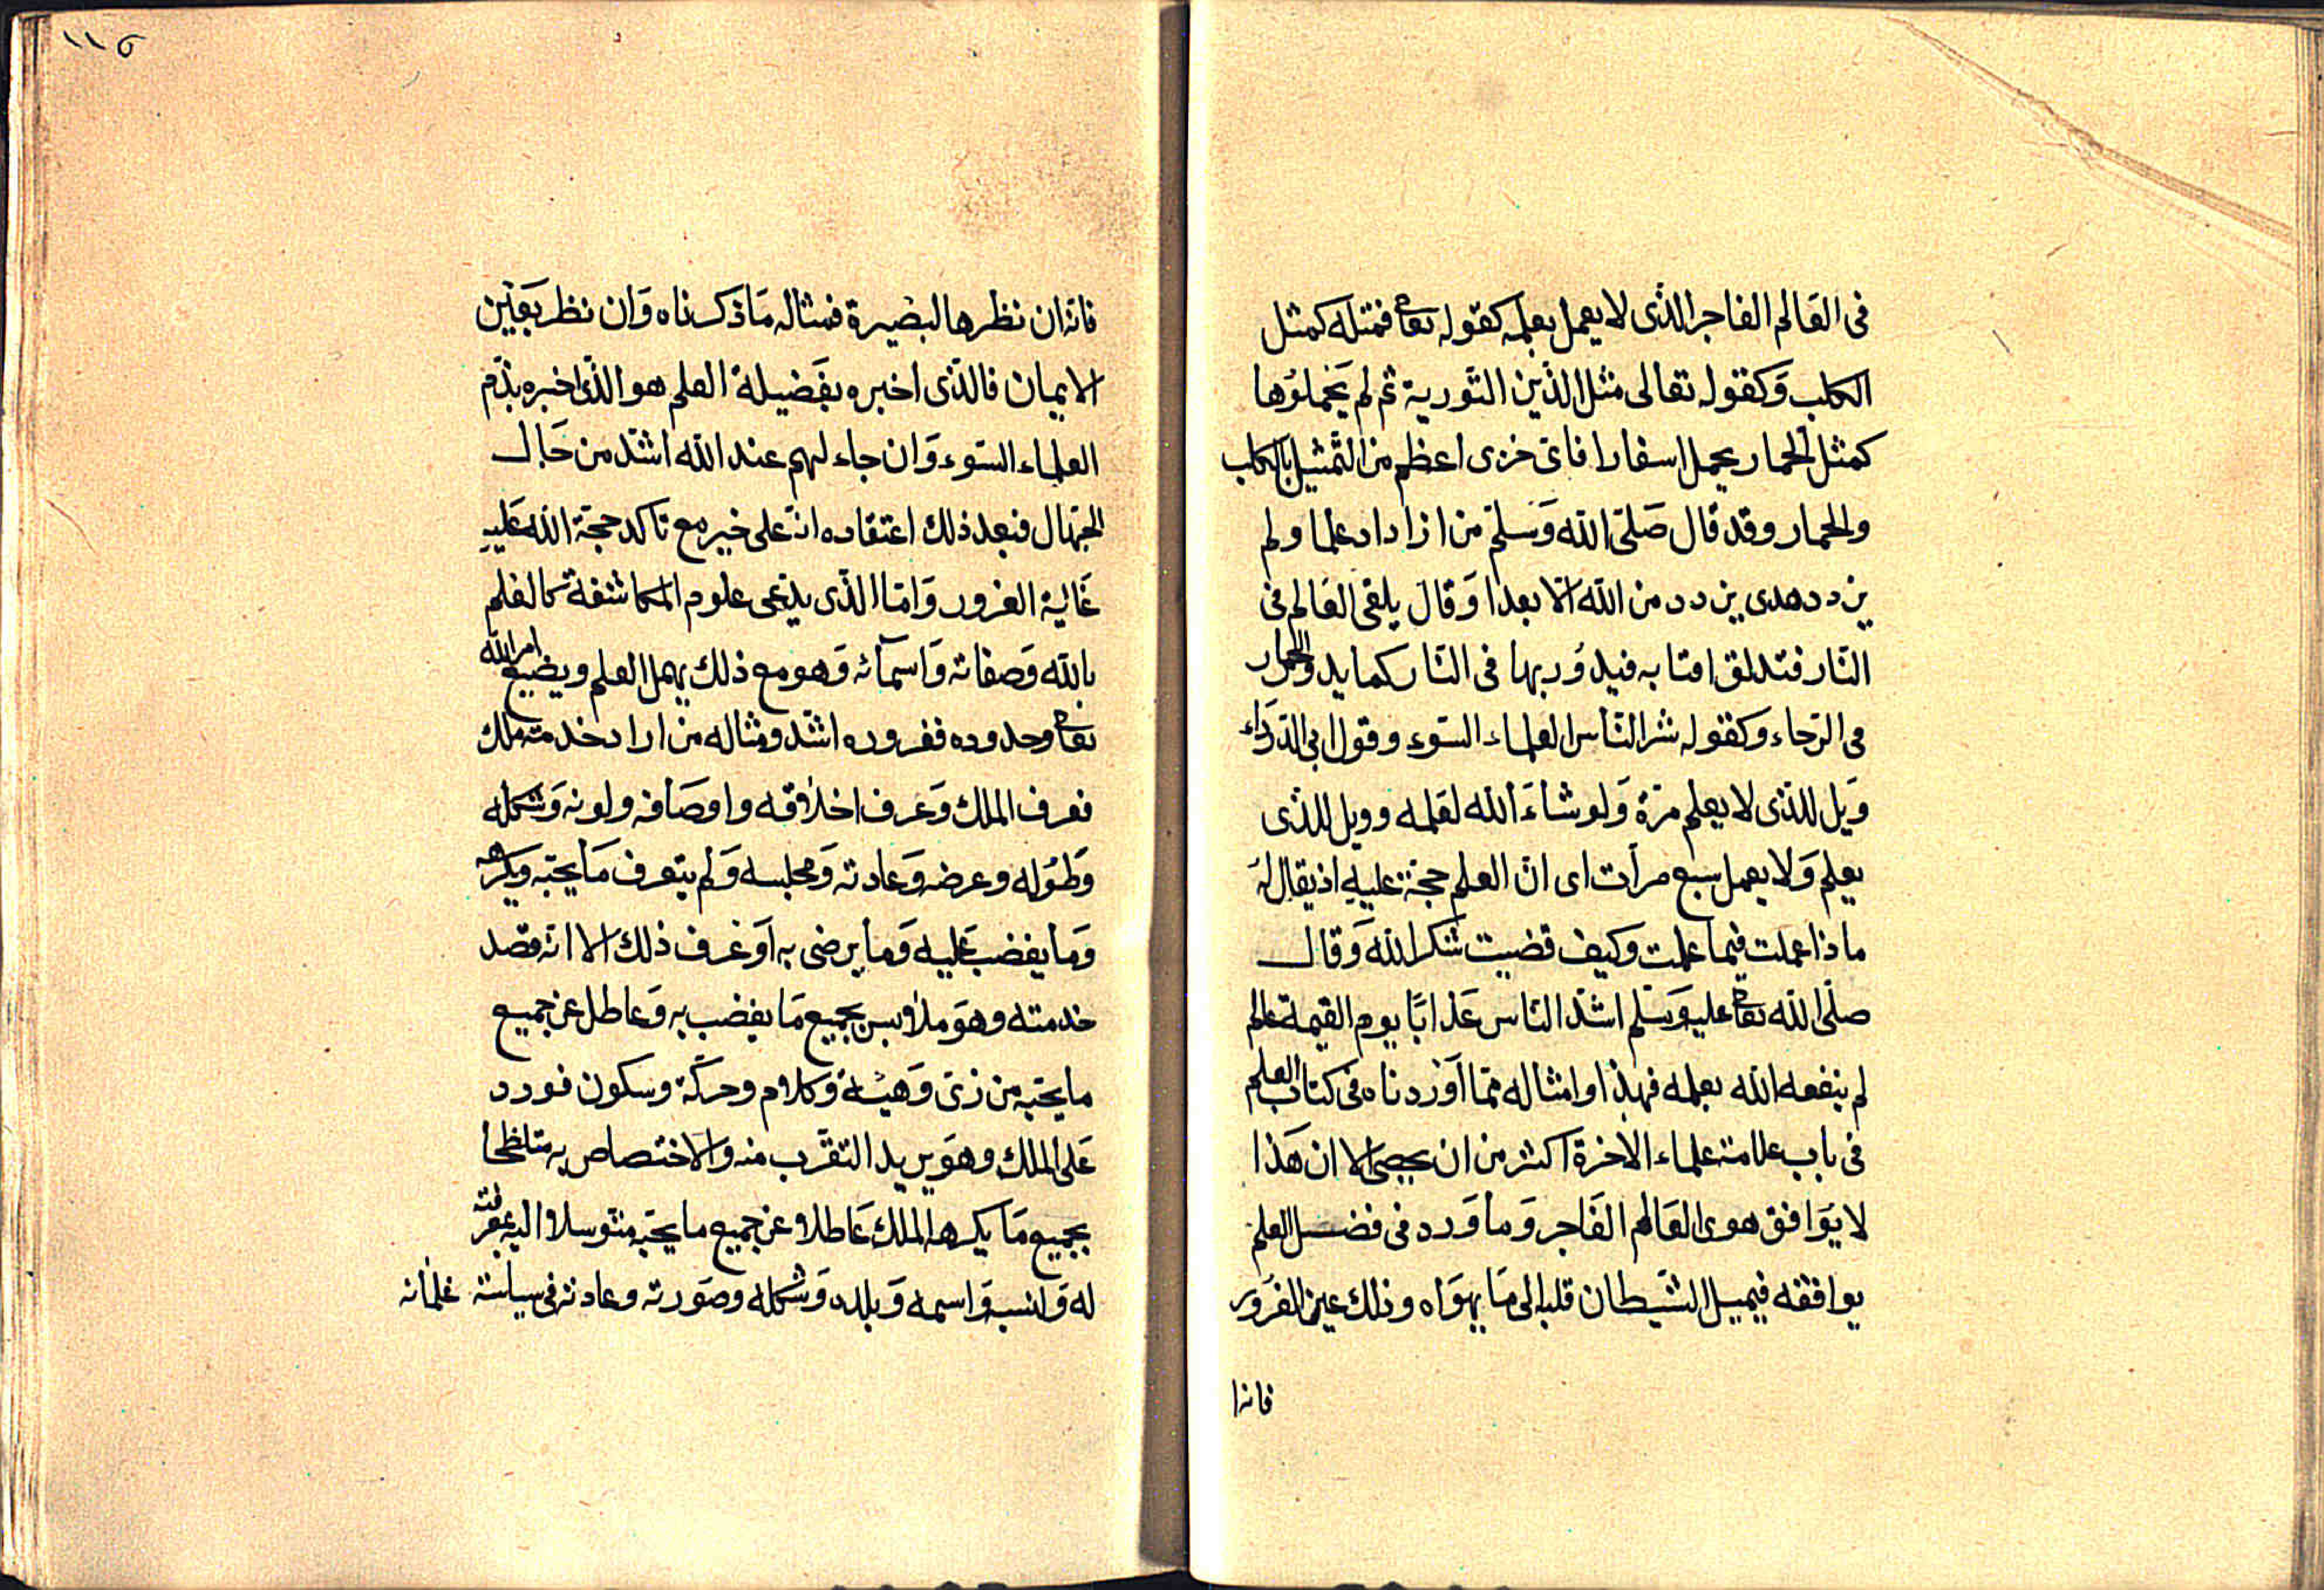 فى العالم الفاجر الذى لا يعمل بعلمه كقوله تعا فمثله كمثل
الكلب وكقوله تعالى مثل الذين التورية ثم لم يحملوها
كمثل الحمار يحمل اسفارا فاى خزى اعظم من التمثيل بالكلب
والحمار وقد قال صلى الله وسلم من ازداد علما ولم
يزدد هدى يزدد من الله الا بعدا وقال يلقى العالم فى
النار فتدلق اقتابه فيدور بها فى النار كما يدور الحمار
فى الرحاء وكقوله شر الناس العلماء السوء وقول ابى الدرداء
ويل للذى لا يعلم مرة ولو شاء الله لعلمه وويل للذى
يعلم ولا يعمل سبع مرات اى ان العلم حجة عليه اذ يقال له
ماذا عملت فيما علمت وكيف قضيت شكر الله وقال
صلى الله تعا عليه وسلم اشد الناس عذابا يوم القيمة عالم
لم ينفعه الله بعلمه فهذا وامثاله مما اوردناه فى كتاب العلم
فى باب علامة علماء الاخرة اكثر من ان يحصى الا ان هذا
لا يوافق هوى العالم الفاجر وما ورد فى فضل العلم
يوافقه فيميل الشيطان قلبه الى ما يهواه وذلك عين الغرور
فانه ا
١١٥
فانه ان نظرها لبصيرة فمثاله ما ذكرناه وان نظر بعين
الايمان فالذى اخبره بفضيلة العلم هو الذى اخبره بذم
العلماء السوء وان جاء لهم عند الله اشد من حال
الجهال فبعد ذلك اعتقاده انه على خير مع تاكد حجة الله عليه
غاية الغرور واما الذى يدعى علوم المكاشفة كالعلم
بالله وصفاته واسمآئه وهو مع ذلك يهمل العلم ويضيع امر الله
تعا وحدوده فغروره اشد ومثاله من اراد خدمة ملك
فعرف الملك وعرف اخلاقه واوصافه ولونه وشكله
وطوله وعرضه وعادته ومجلسه ولم يتعرف ما يحبه ويكرهه
وما يغضب عليه وما يرضى به او عرف ذلك الا انه قصد
خدمته وهو ملابس بجميع ما يغضب به وعاطل عن جميع
ما يحبه من زى وهيئة وكلام وحركة وسكون فورد
على الملك وهو يريد التقرب منه والاختصاص به متلطخا
بجميع ما يكرهه الملك عاطلا عن جميع ما يحبه متوسلا اليه بمعرفته
له ولنسبه واسمه وبلده وشكله وصورته وعادته فى سياسة غلمانه